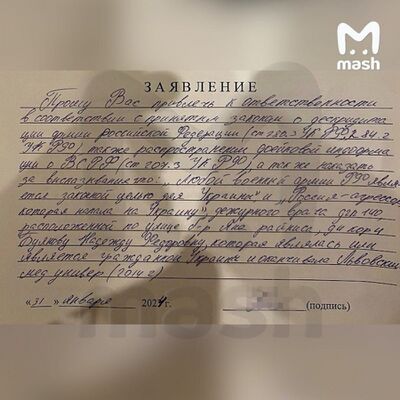 mash
ЗАЯВЛЕНИЕ
Прошу Вас привлечь к ответственности
в соответствии с принятым законом о дискредита
ции армии Российской Федерации (ст 280.3 УК РФ,
УК РФ) также распространении фейковой информа
ции о ВС РФ (ст 207.3 УК РФ), а также наказать
за высказывание что: „Любой военный армии РФ явля
ется законной целью для Украины" и „Россия - агрессор,
которая напала на Украину", дежурного врача
расположенной по улице б-р Яна Райниса,
Буянову Надежду Федоровну, которая являлась или
является гражданкой Украины и оканчивала Львовский
мед универ
« 31 » января 2024 г. (подпись)
mash